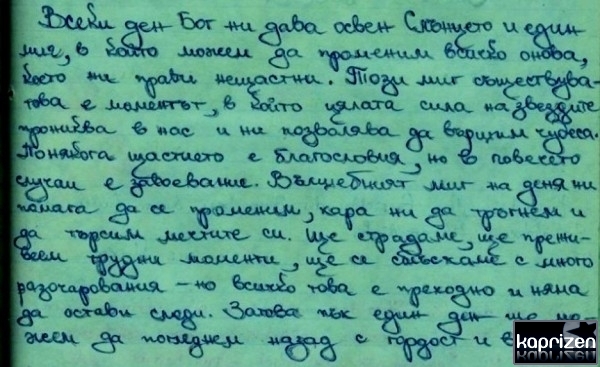 Всеки ден Бог ни дава освен Слънцето и един
миг, в който можем да променим всичко онова,
което ни прави нещастни. Този миг съществува -
това е моментът, в който цялата сила на звездите
прониква в нас и ни позволява да вършим чудеса.
Понякога щастието е благословия, но в повечето
случаи е завоевание. Вълшебният миг на деня ни
помага да се променим, кара ни да тръгнем и
да търсим мечтите си. Ще страдаме, ще прежи-
веем трудни моменти, ще се сблъскаме с много
разочарования - но всичко това е преходно и няма
да остави следи. Затова пък един ден ще мо-
жем да погледнем назад с гордост и в
kaprizen